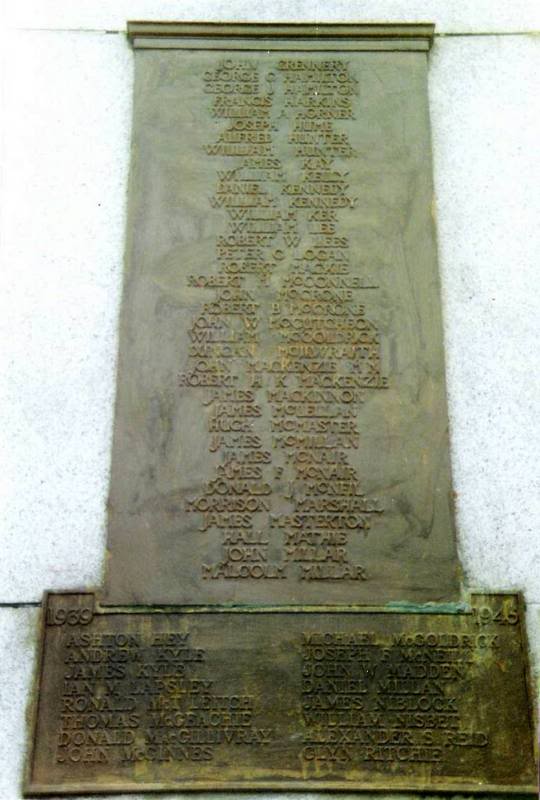 JOHN GRENNERY
GEORGE C HAMILTON
GEORGE J HAMILTON
FRANCIS HARKINS
WILLIAM A HORNER
JOSEPH HUME
ALFRED HUNTER
WILLIAM HUNTER
JAMES KAY
WILLIAM KELLY
DANIEL KENNEDY
WILLIAM KENNEDY
WILLIAM KER
WILLIAM LEE
ROBERT W LEES
PETER C LOGAN
ROBERT MACKIE
ROBERT MCCONNELL
JOHN MCCRONE
ROBERT B MCCRONE
JOHN W MCCUTCHEON
WILLIAM MCGOLDRICK
DUNCAN MCILWRAITH
JOHN MACKENZIE M M
ROBERT A K MACKENZIE
JAMES MACKINNON
JAMES MCLELLAN
HUGH MCMASTER
JAMES MCMILLAN
JAMES MCNAIR
JAMES F MCNAIR
DONALD J MCNEIL
MORRISON MARSHALL
JAMES MASTERTON
HALL MATHIE
JOHN MILLAR
MALCOLM MILLAR
1939 1945
ASHTON HEY
ANDREW KYLE
JAMES KYLE
IAN M. LAPSLEY
RONALD McI. LEITCH
THOMAS McGEACHIE
DONALD MacGILLIVRAY
JOHN McGINNES
MICHAEL McGOLDRICK
JOSEPH F. McNEILL
JOHN W MADDEN
DANIEL MILLAN
JAMES NIBLOCK
WILLIAM NISBET
ALEXANDER S. REID
GLYN RITCHIE